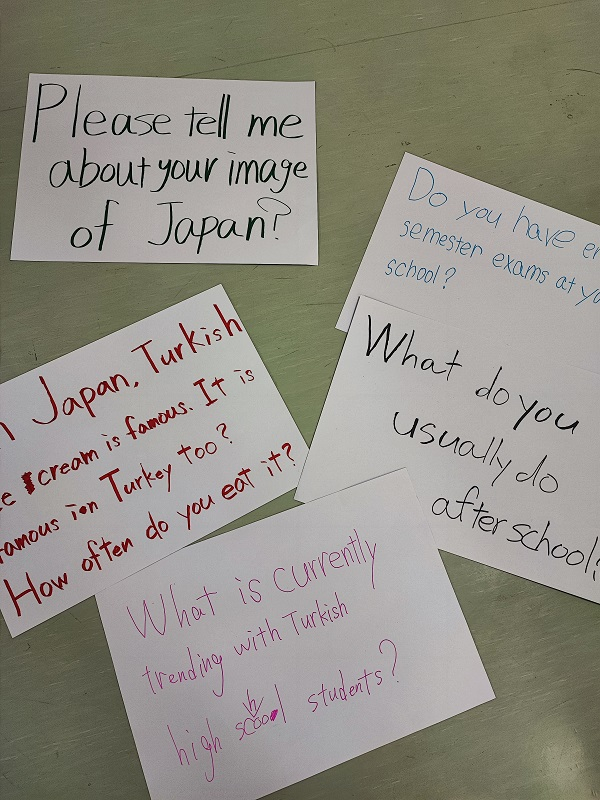 Please tell me
about your image
of Japan?
Do you have en
semester exams at yo
school?
What do you
usually do
after school?
n Japan, Turkish
ce cream is famous. It is
famous in Turkey too?
How often do you eat it?
What is currently
trending with Turkish
high school students?